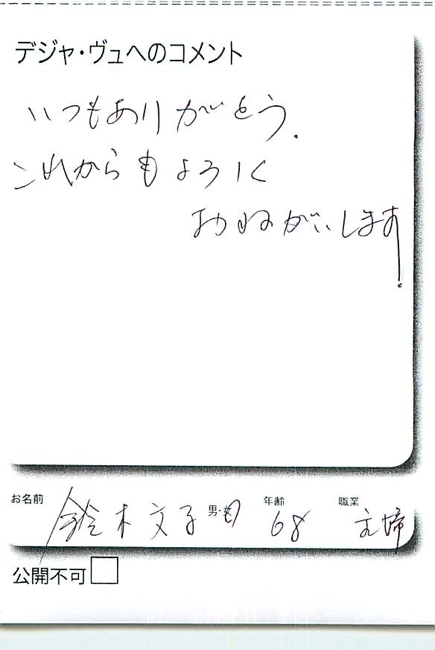 デジャ・ヴュへのコメント
いつもありがとう.
これからもよろしく
おねがいします!
お名前 鈴木文子 男・女 年齢 68 職業 主婦
公開不可